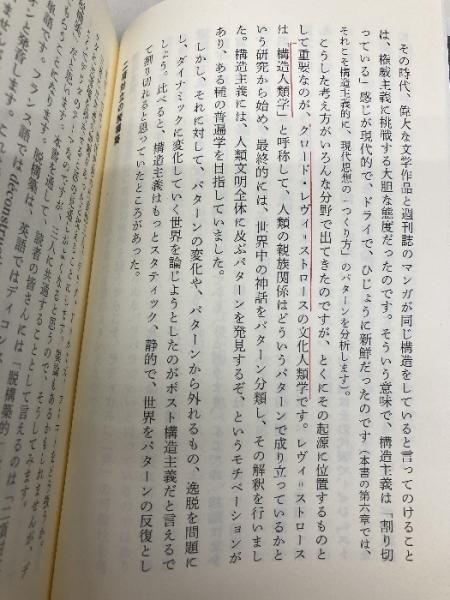 その時代、偉大な文学作品と週刊誌のマンガが同じ構造をしていると言ってのけること
は、権威主義に挑戦する大胆な態度だったのです。そういう意味で、構造主義は「割り切
っている」感じが現代的で、ドライで、ひじょうに新鮮だったのです（本書の第六章では、
それこそ構造主義的に、現代思想の「つくり方」のパターンを分析します）。
こうした考え方がいろんな分野で出てきたのですが、とくにその起源に位置するものと
して重要なのが、クロード・レヴィ＝ストロースの文化人類学です。レヴィ＝ストロース
は「構造人類学」と呼称して、人類の親族関係はどういうパターンで成り立っているかと
いう研究から始め、最終的には、世界中の神話をパターン分類し、その解釈を行いまし
た。構造主義には、人類文明全体に及ぶパターンを発見するぞ、というモチベーションが
あり、ある種の普遍学を目指していました。
しかし、それに対して、パターンの変化や、パターンから外れるもの、逸脱を問題に
し、ダイナミックに変化していく世界を論じようとしたのがポスト構造主義だと言えるで
しょう。比べると、構造主義はもっとスタティック、静的で、世界をパターンの反復とし
て割り切れると思っていたところがあった。
二項対立の脱構築
読者の皆さんには「脱構築的
単語です。脱構築は、英語ではディコンス
と発音します。